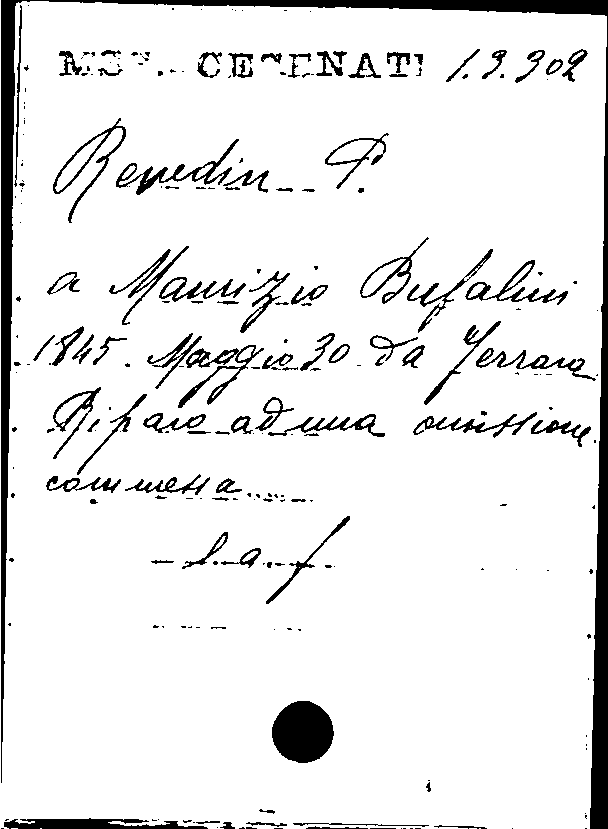 MSS. CESENATI 1.3.302
Revedin P.
a Maurizio Bufalini
1845. Maggio 30 da Ferrara
Ripara ad una omissione
commessa
l.a.f.